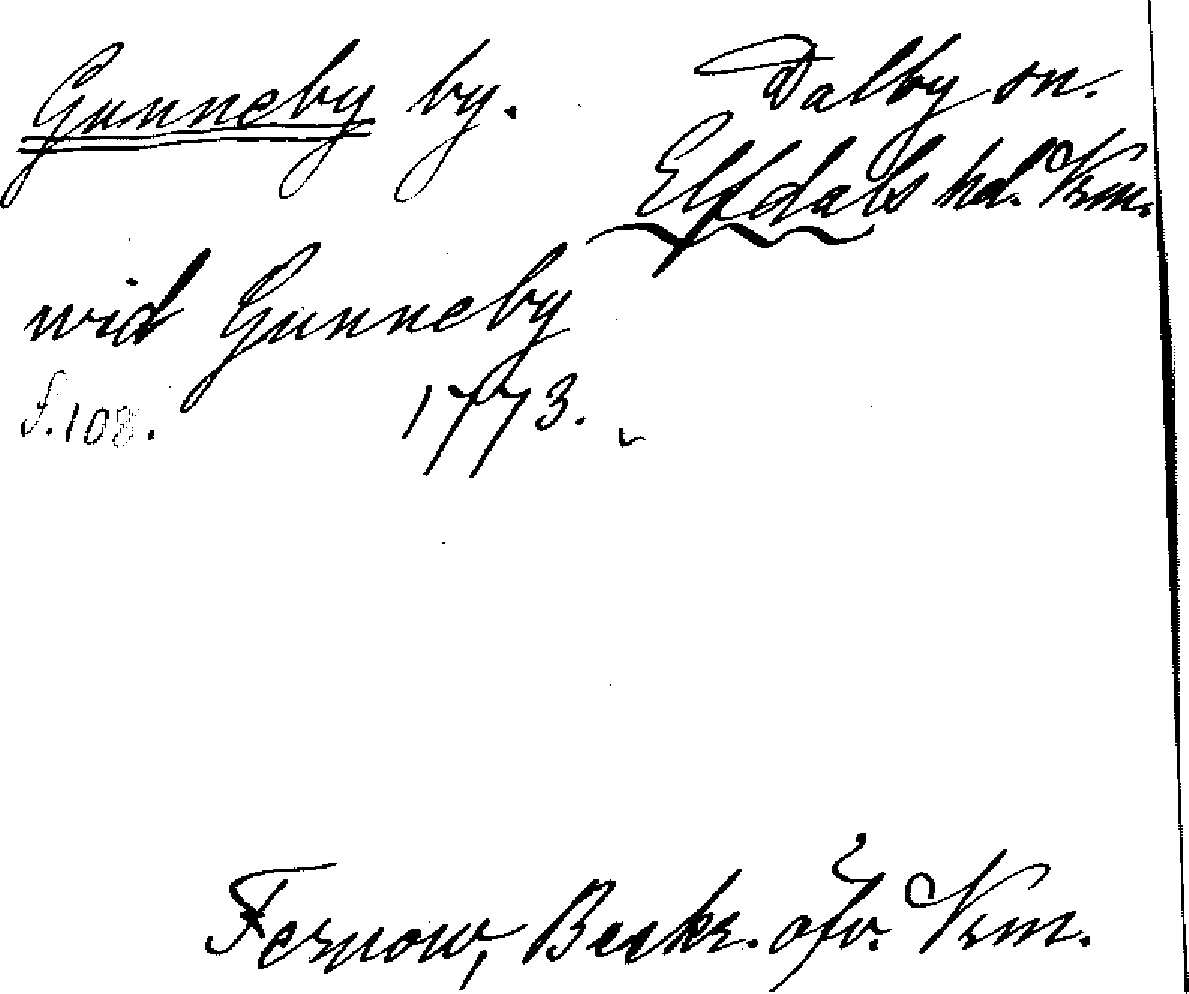 Gunneby by. Dalby sn.
Elfdals hd. Vrm.
wid Gunneby
s. 108. 1773.
Fernow, Beskr. öfv. Vrm.